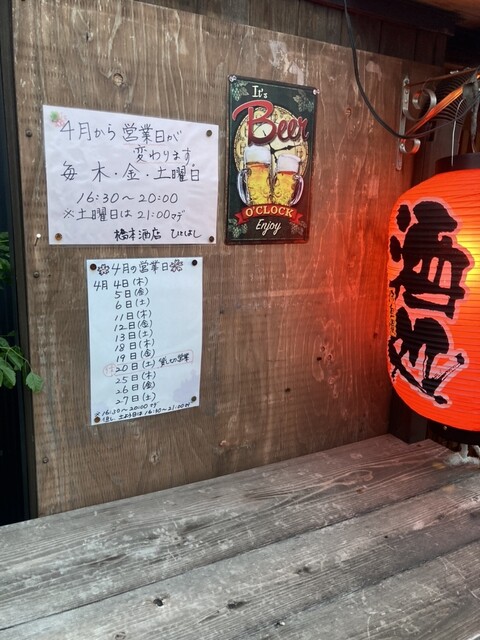 4月から営業日が
変わります
毎 木・金・土曜日
16:30～20:00
※土曜日は21:00マデ
橋本酒店 ひとはし
It's
Beer
O'CLOCK
Enjoy
4月の営業日
4月 4日(木)
5日(金)
6日(土)
11日(木)
12日(金)
13日(土)
18日(木)
19日(金)
20日(土)
25日(木)
26日(金)
27日(土)
※16:30～20:00マデ
但し 土曜日は16:30～21:00マデ
酒